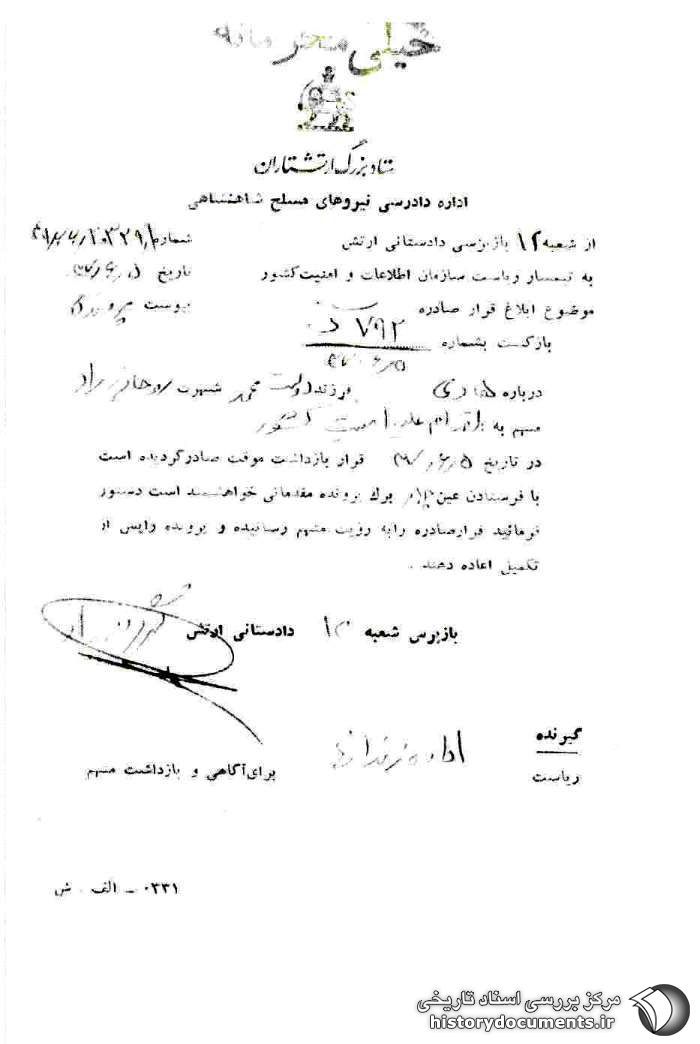 خیلی محرمانه
ستاد بزرگ ارتشتاران
اداره دادرسی نیروهای مسلح شاهنشاهی
از شعبه ۱۲ بازپرسی دادستانی ارتش
شماره
به تیمسار ریاست سازمان اطلاعات و امنیت کشور
تاریخ
موضوع ابلاغ قرار صادره
پیوست پرونده
بازگشت بشماره ۷۹۲
درباره هادی فرزند دولت محمد شهرت روحانی راد
متهم به اقدام علیه امنیت کشور
در تاریخ قرار بازداشت موقت صادرگردیده است
با فرستادن عین برگ پرونده مقدماتی خواهشمند است دستور
فرمائید قرارصادره رابه رؤیت متهم رسانیده و پرونده راپس از
تکمیل اعاده دهند .
بازپرس شعبه ۱۲ دادستانی ارتش
گیرنده
ریاست اداره زندانها برای آگاهی و بازداشت متهم
۰۳۳۱ - الف . ش
مرکز بررسی اسناد تاریخی
historydocuments.ir